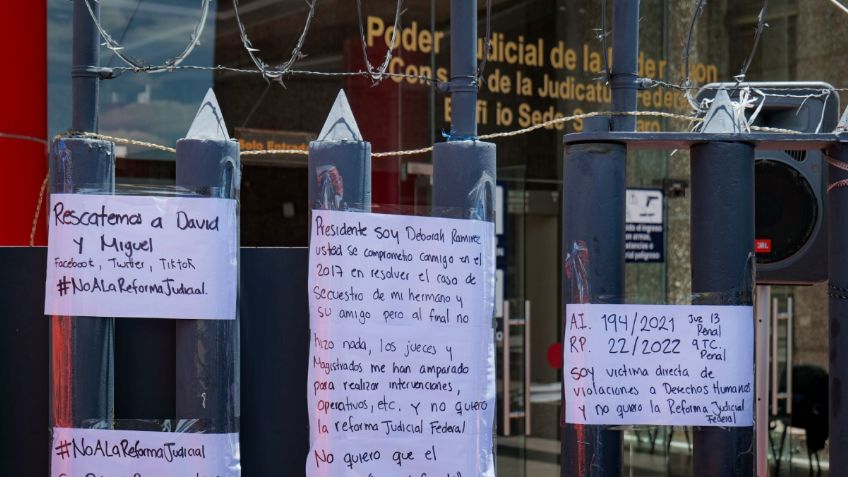 Poder Judicial de la Federación
Consejo de la Judicatura Federal
Edificio Sede San
Solo Entrada
Rescatemos a David
y Miguel
Facebook, Twitter, Tiktok
#NoALaReformaJudicial.
#NoALaReformaJudicial
Presidente soy Deborah Ramirez
usted se comprometio conmigo en el
2017 en resolver el caso de
secuestro de mi hermano y
su amigo pero al final no
hizo nada, los jueces y
Magistrados me han amparado
para realizar intervenciones,
operativos, etc. y no quiero
la reforma Judicial Federal
No quiero que el
A.I. 194/2021 Juz 13 Penal
R.P. 22/2022 9 T.C. Penal
soy victima directa de
violaciones a Derechos Humanos
y no quero la Reforma Judicial
Federal
JBL